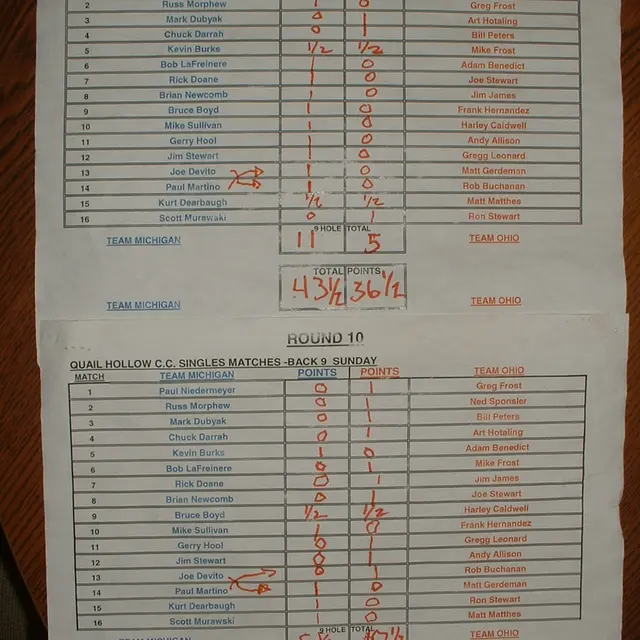 2 Russ Morphew 1 0 Greg Frost
3 Mark Dubyak 0 1 Art Hotaling
4 Chuck Darrah 0 1 Bill Peters
5 Kevin Burks 1/2 1/2 Mike Frost
6 Bob LaFreinere 1 0 Adam Benedict
7 Rick Doane 1 0 Joe Stewart
8 Brian Newcomb 1 0 Jim James
9 Bruce Boyd 1 0 Frank Hernandez
10 Mike Sullivan 1 0 Harley Caldwell
11 Gerry Hool 1 0 Andy Allison
12 Jim Stewart 1 0 Gregg Leonard
13 Joe Devito 1 0 Matt Gerdeman
14 Paul Martino 1 0 Rob Buchanan
15 Kurt Dearbaugh 1/2 1/2 Matt Matthes
16 Scott Murawski 0 1 Ron Stewart
9 HOLE TOTAL
TEAM MICHIGAN 11 5 TEAM OHIO
TOTAL POINTS
TEAM MICHIGAN 43 1/2 36 1/2 TEAM OHIO
ROUND 10
QUAIL HOLLOW C.C. SINGLES MATCHES -BACK 9 SUNDAY
MATCH TEAM MICHIGAN POINTS POINTS TEAM OHIO
1 Paul Niedermeyer 0 1 Greg Frost
2 Russ Morphew 0 1 Ned Sponsler
3 Mark Dubyak 0 1 Bill Peters
4 Chuck Darrah 0 1 Art Hotaling
5 Kevin Burks 1 0 Adam Benedict
6 Bob LaFreinere 0 1 Mike Frost
7 Rick Doane 0 1 Jim James
8 Brian Newcomb 0 1 Joe Stewart
9 Bruce Boyd 1/2 1/2 Harley Caldwell
10 Mike Sullivan 1 0 Frank Hernandez
11 Gerry Hool 0 1 Gregg Leonard
12 Jim Stewart 0 1 Andy Allison
13 Joe Devito 0 1 Rob Buchanan
14 Paul Martino 1 0 Matt Gerdeman
15 Kurt Dearbaugh 1 0 Ron Stewart
16 Scott Murawski 1 0 Matt Matthes
9 HOLE TOTAL
TEAM MICHIGAN TEAM OHIO